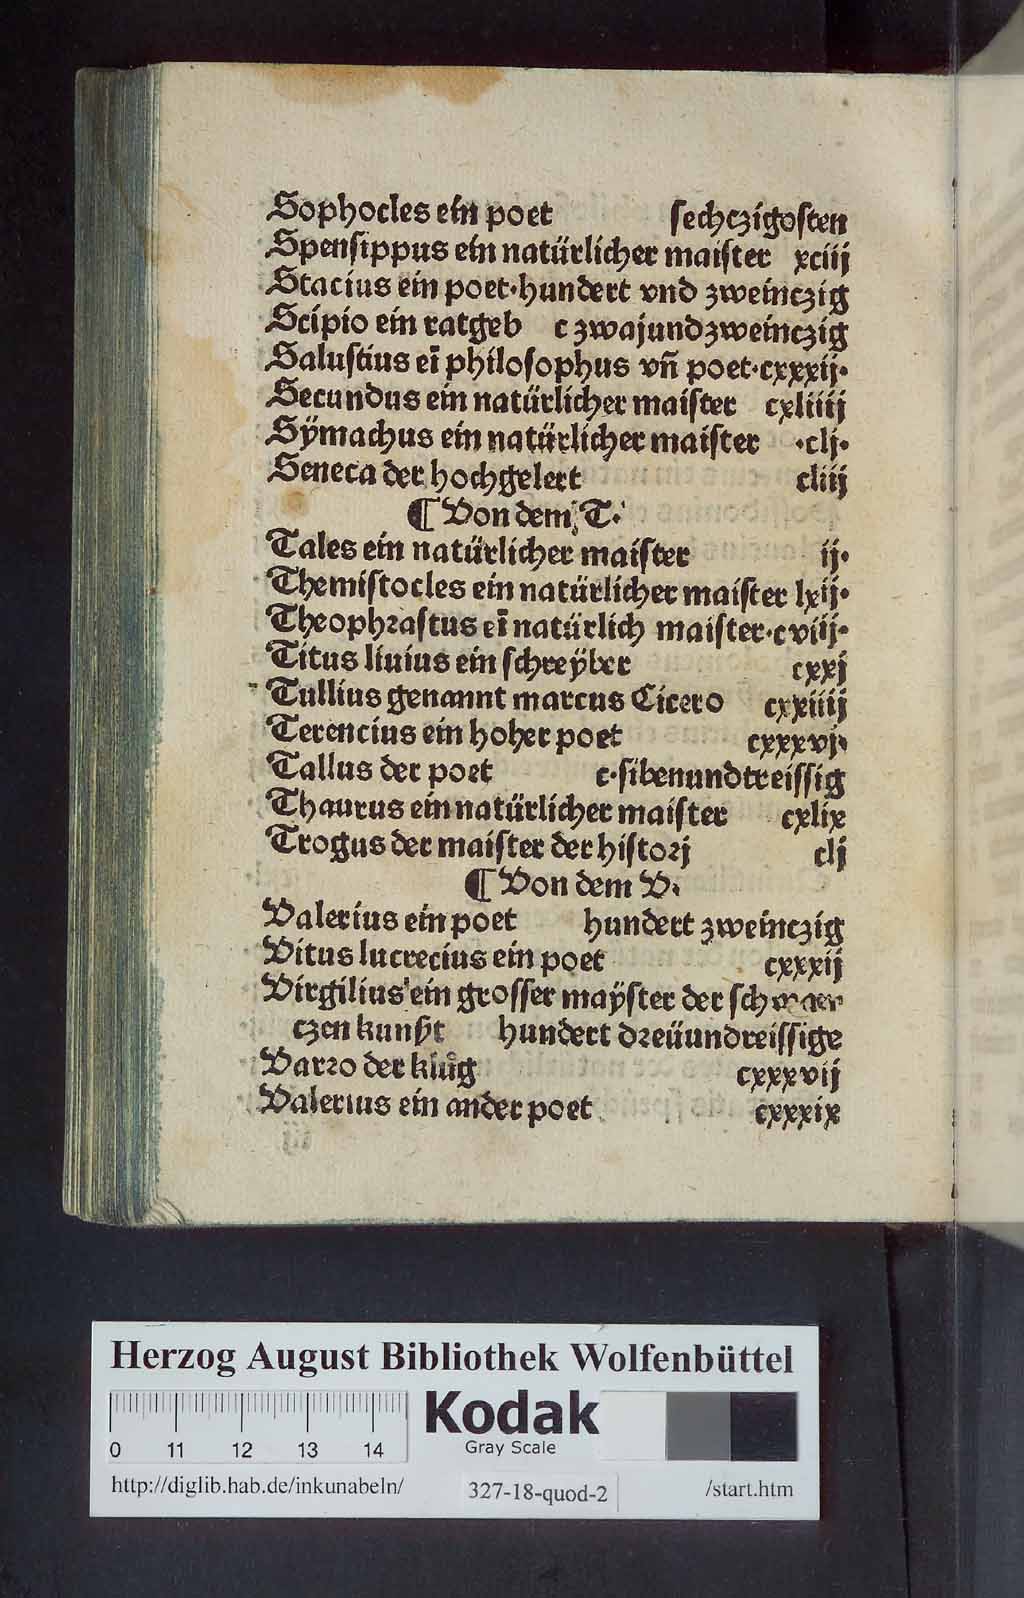 Sophocles ein poet ſechczigoſten
Spenſippus ein natürlicher maiſter xciij
Stacius ein poet·hundert vnd zweinczig
Scipio ein ratgeb c zwajundzweinczig
Saluſtius eī philoſophus vn̄ poet·cxxxij·
Secundus ein natürlicher maiſter cxliiij
Sÿmachus ein natürlicher maiſter ·clj·
Seneca der hochgelert cliij
¶ Von dem T·
Tales ein natürlicher maiſter ij·
Themiſtocles ein natürlicher maiſter lxij·
Theophꝛaſtus eī natürlich maiſter·cviij·
Titus liuius ein ſchreÿber cxxj
Tullius genannt marcus Cicero cxxiiij
Terencius ein hoher poet cxxxvj·
Tallus der poet c·ſibenundtreiſſig
Thaurus ein natürlicher maiſter cxlix
Trogus der maiſter der hiſtoꝛj clj
¶ Von dem V·
Valerius ein poet hundert zweinczig
Vitus lucrecius ein poet cxxxij
Virgilius ein groſſer maÿſter der
czen kunſt hundert dꝛeüundreiſſige
Varꝛo der klůg cxxxvij
Valerius ein ander poet cxxxix
Herzog August Bibliothek Wolfenbüttel
Kodak
Gray Scale
0 11 12 13 14
http://diglib.hab.de/inkunabeln/ 327-18-quod-2 /start.htm